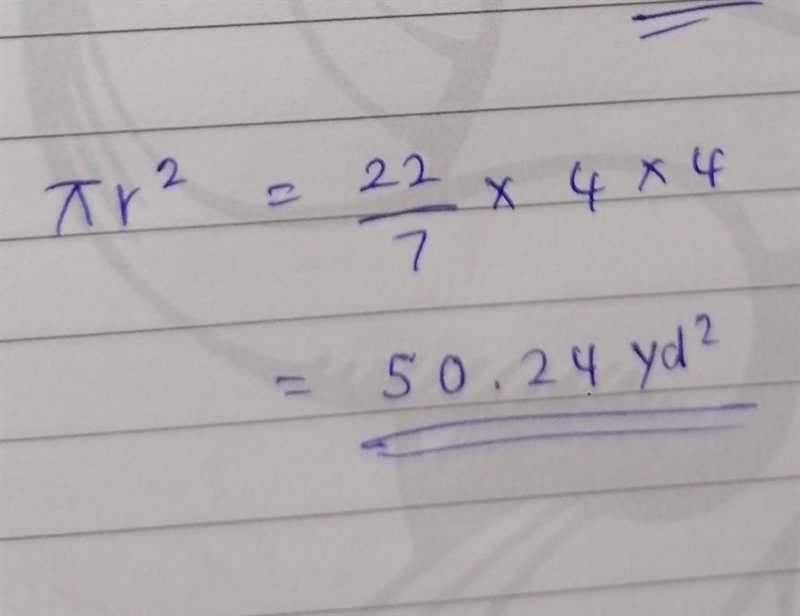 πr² = 22/7 × 4 × 4
= 50.24 yd²